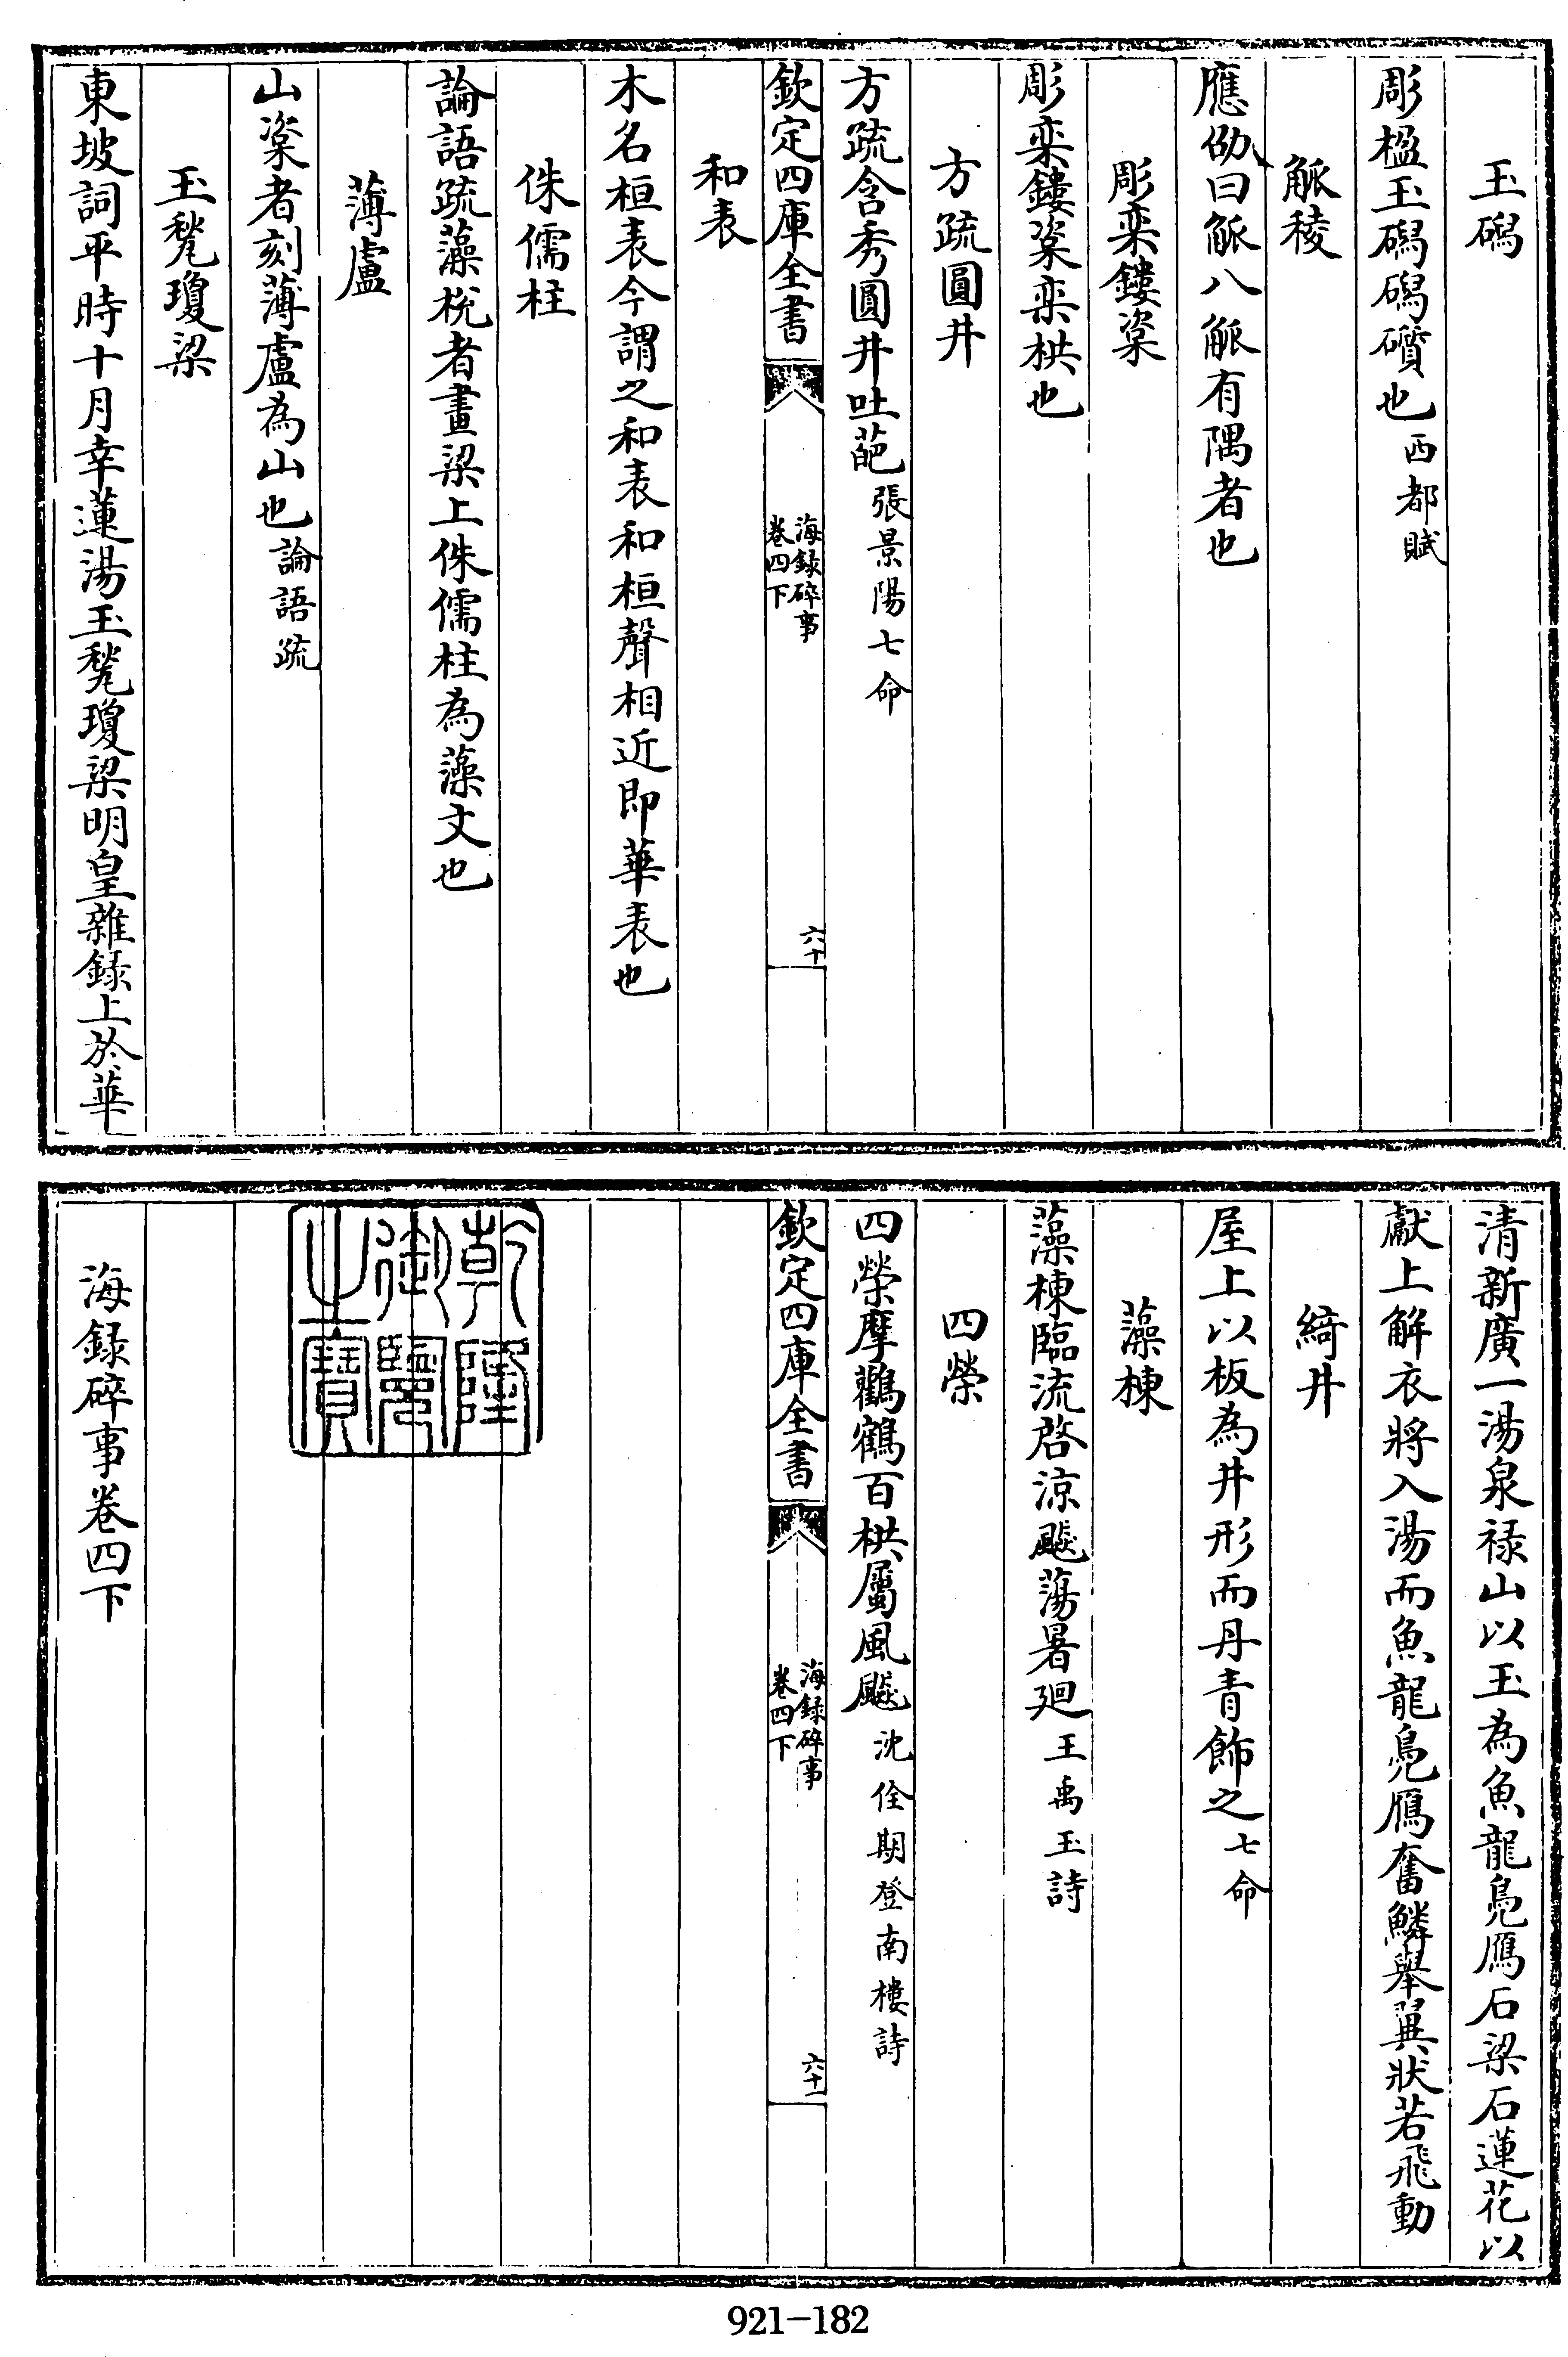 玉磶
彫楹玉磶磶礩也西都賦
觚稜
應劭曰觚八觚有隅者也
彫栾鏤楶
彫栾鏤楶栾栱也
方疏圓井
方疏含秀圓井吐葩張景陽七命
欽定四庫全書
海録碎事
卷四下
六十
和表
木名桓表今謂之和表和桓聲相近即華表也
侏儒柱
論語疏藻梲者畫梁上侏儒柱為藻文也
薄盧
山楶者刻薄盧為山也論語疏
玉甃瓊梁
東坡詞平時十月幸蓮湯玉甃瓊梁明皇雜録上於華
清新廣一湯泉禄山以玉為魚龍鳬鴈石梁石蓮花以
獻上解衣將入湯而魚龍鳬鴈奮鱗舉翼狀若飛動
綺井
屋上以板為井形而丹青飾之七命
藻棟
藻棟臨流啓涼飈蕩暑廻王禹玉詩
四榮
四榮摩鸛鶴百栱屬風飈沈佺期登南樓詩
欽定四庫全書
海録碎事
卷四下
六十一
乾隆御覽之寶
海録碎事卷四下
921-182